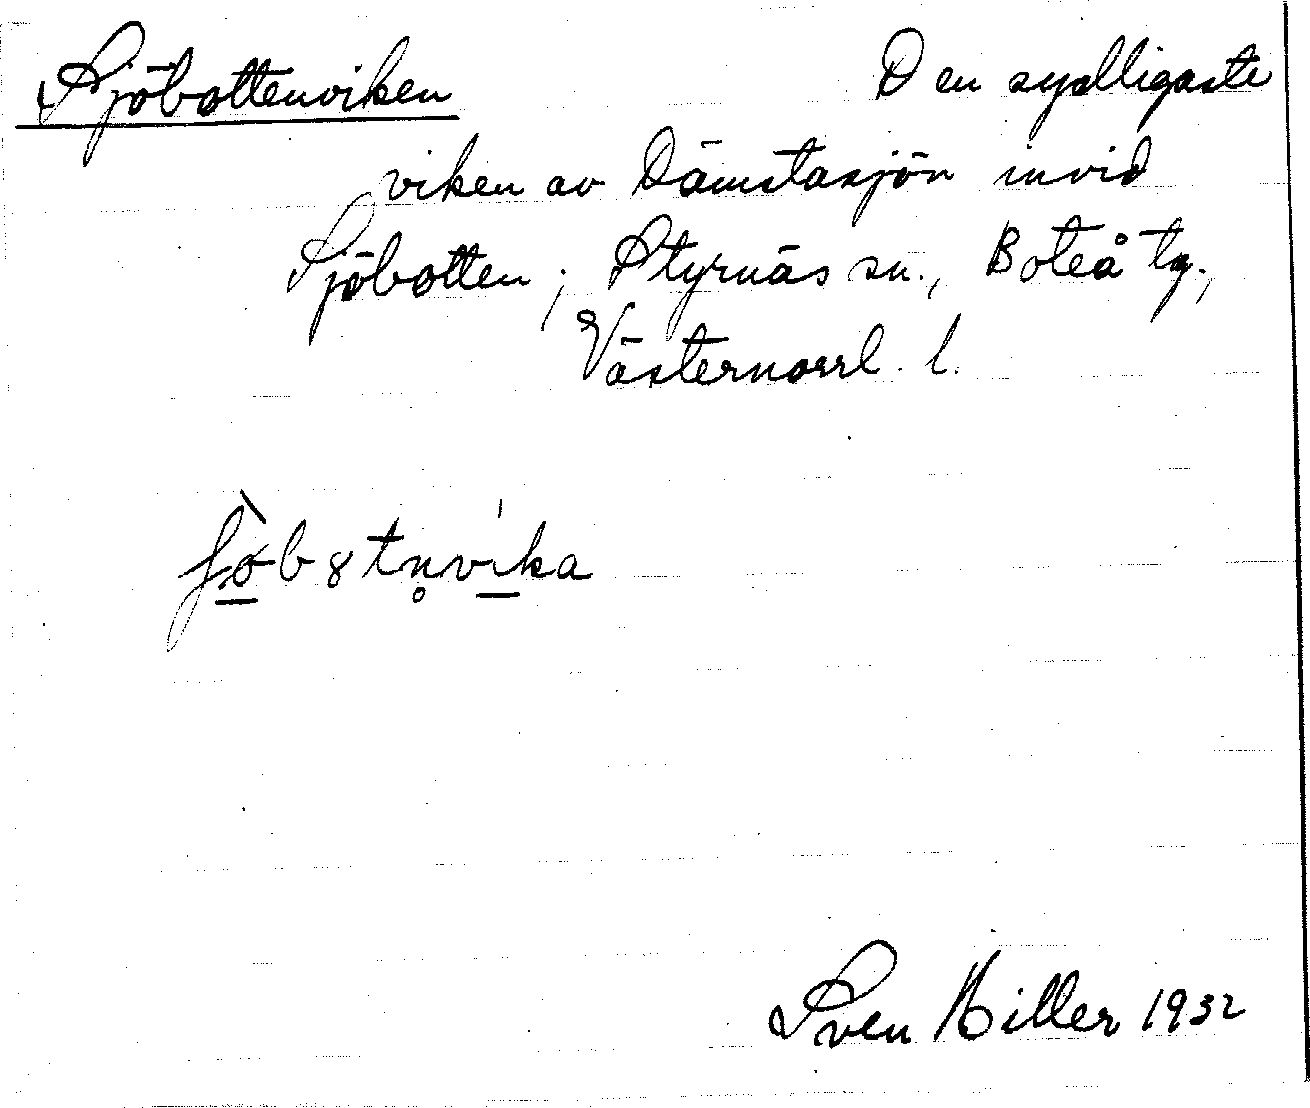 Sjöbottenviken Den sydligaste
viken av Dämstasjön invid
Sjöbotten; Styrnäs sn., Boteå tg.,
Västernorrl. l.
Sven Hiller 1932